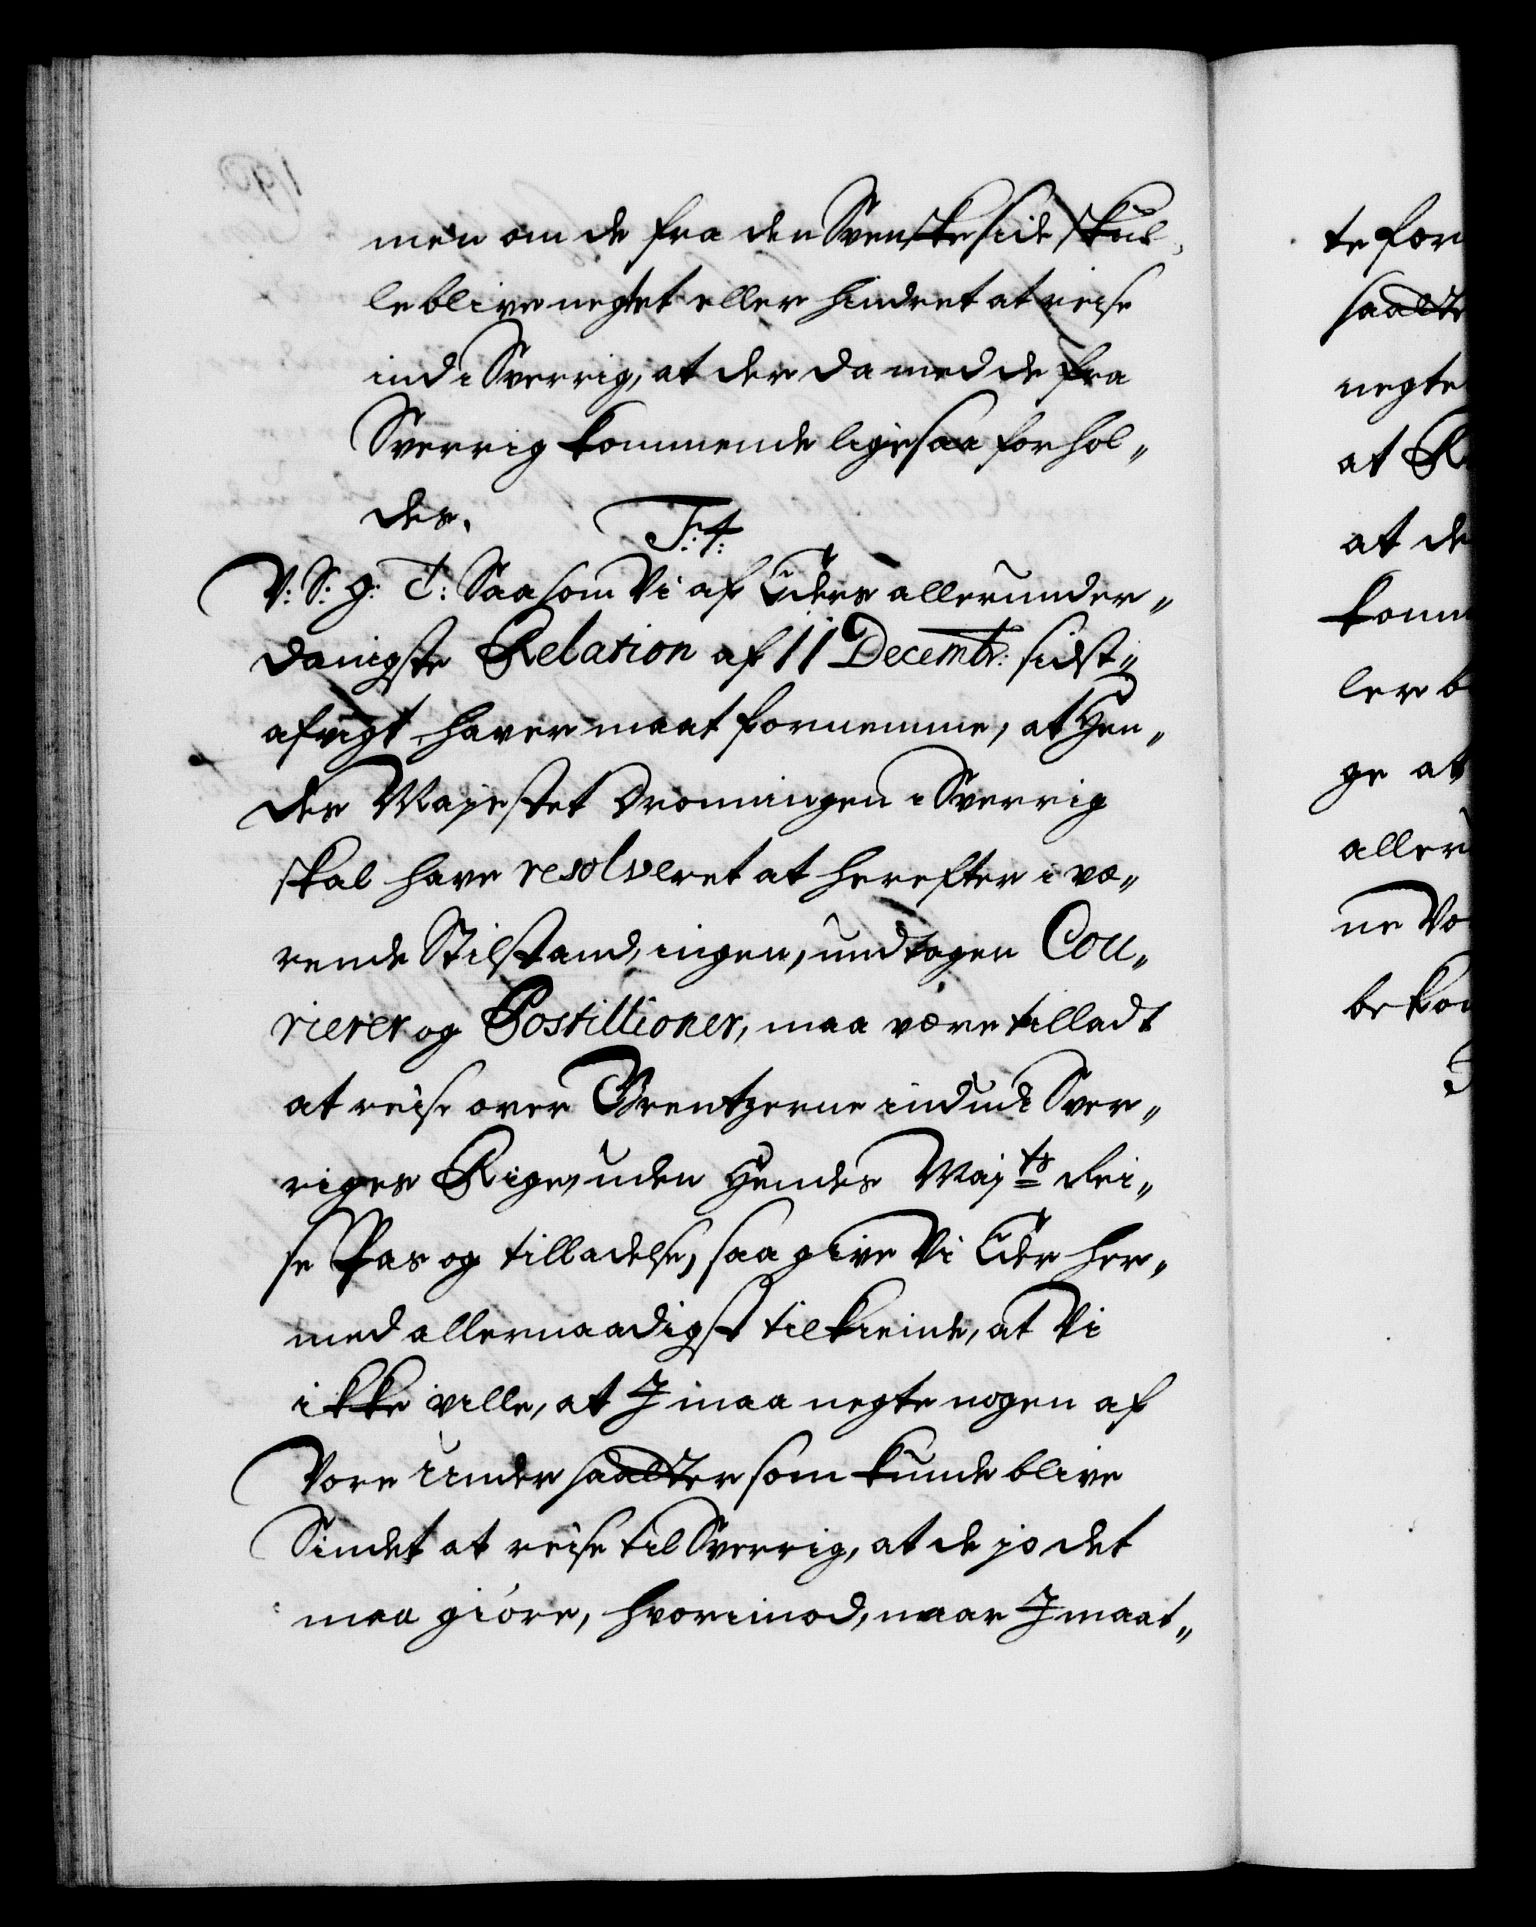 men om de fra den Svenske side skul„
le blive negtet eller hindret at reise
ind i Sverrig, at der da med de fra
Sverrig kommende ligesaa forhol„
des.
F: 4:
V: S: G: T: Saasom Vi af Eders allerunder„
danigste Relation af 11 Decembr: sidst„
afvigt haver maat fornemme, at Hen„
des Majestet Dronningen i Sverrig
skal have resolveret at herefter i væ„
rende Stilstand, ingen, undtagen Cou„
rierer og Postillioner, maa være tilladt
at reise over Grentzerne ind udi Sver„
riges Rige, uden Hendes Majts Rei„
se Pas og tilladelse, saa give Vi Eder her„
med allernaadigst tilkiende, at Vi
ikke ville, at I maa negte nogen af
Vore Undersaatter som kunde blive
Sindet at reise til Sverrig, at de jo det
maa giöre, hvorimod, naar I maat„
te for
saaltte
negte
at R
at de
komm
ler b
ge at
aller
ne Vo
bekom